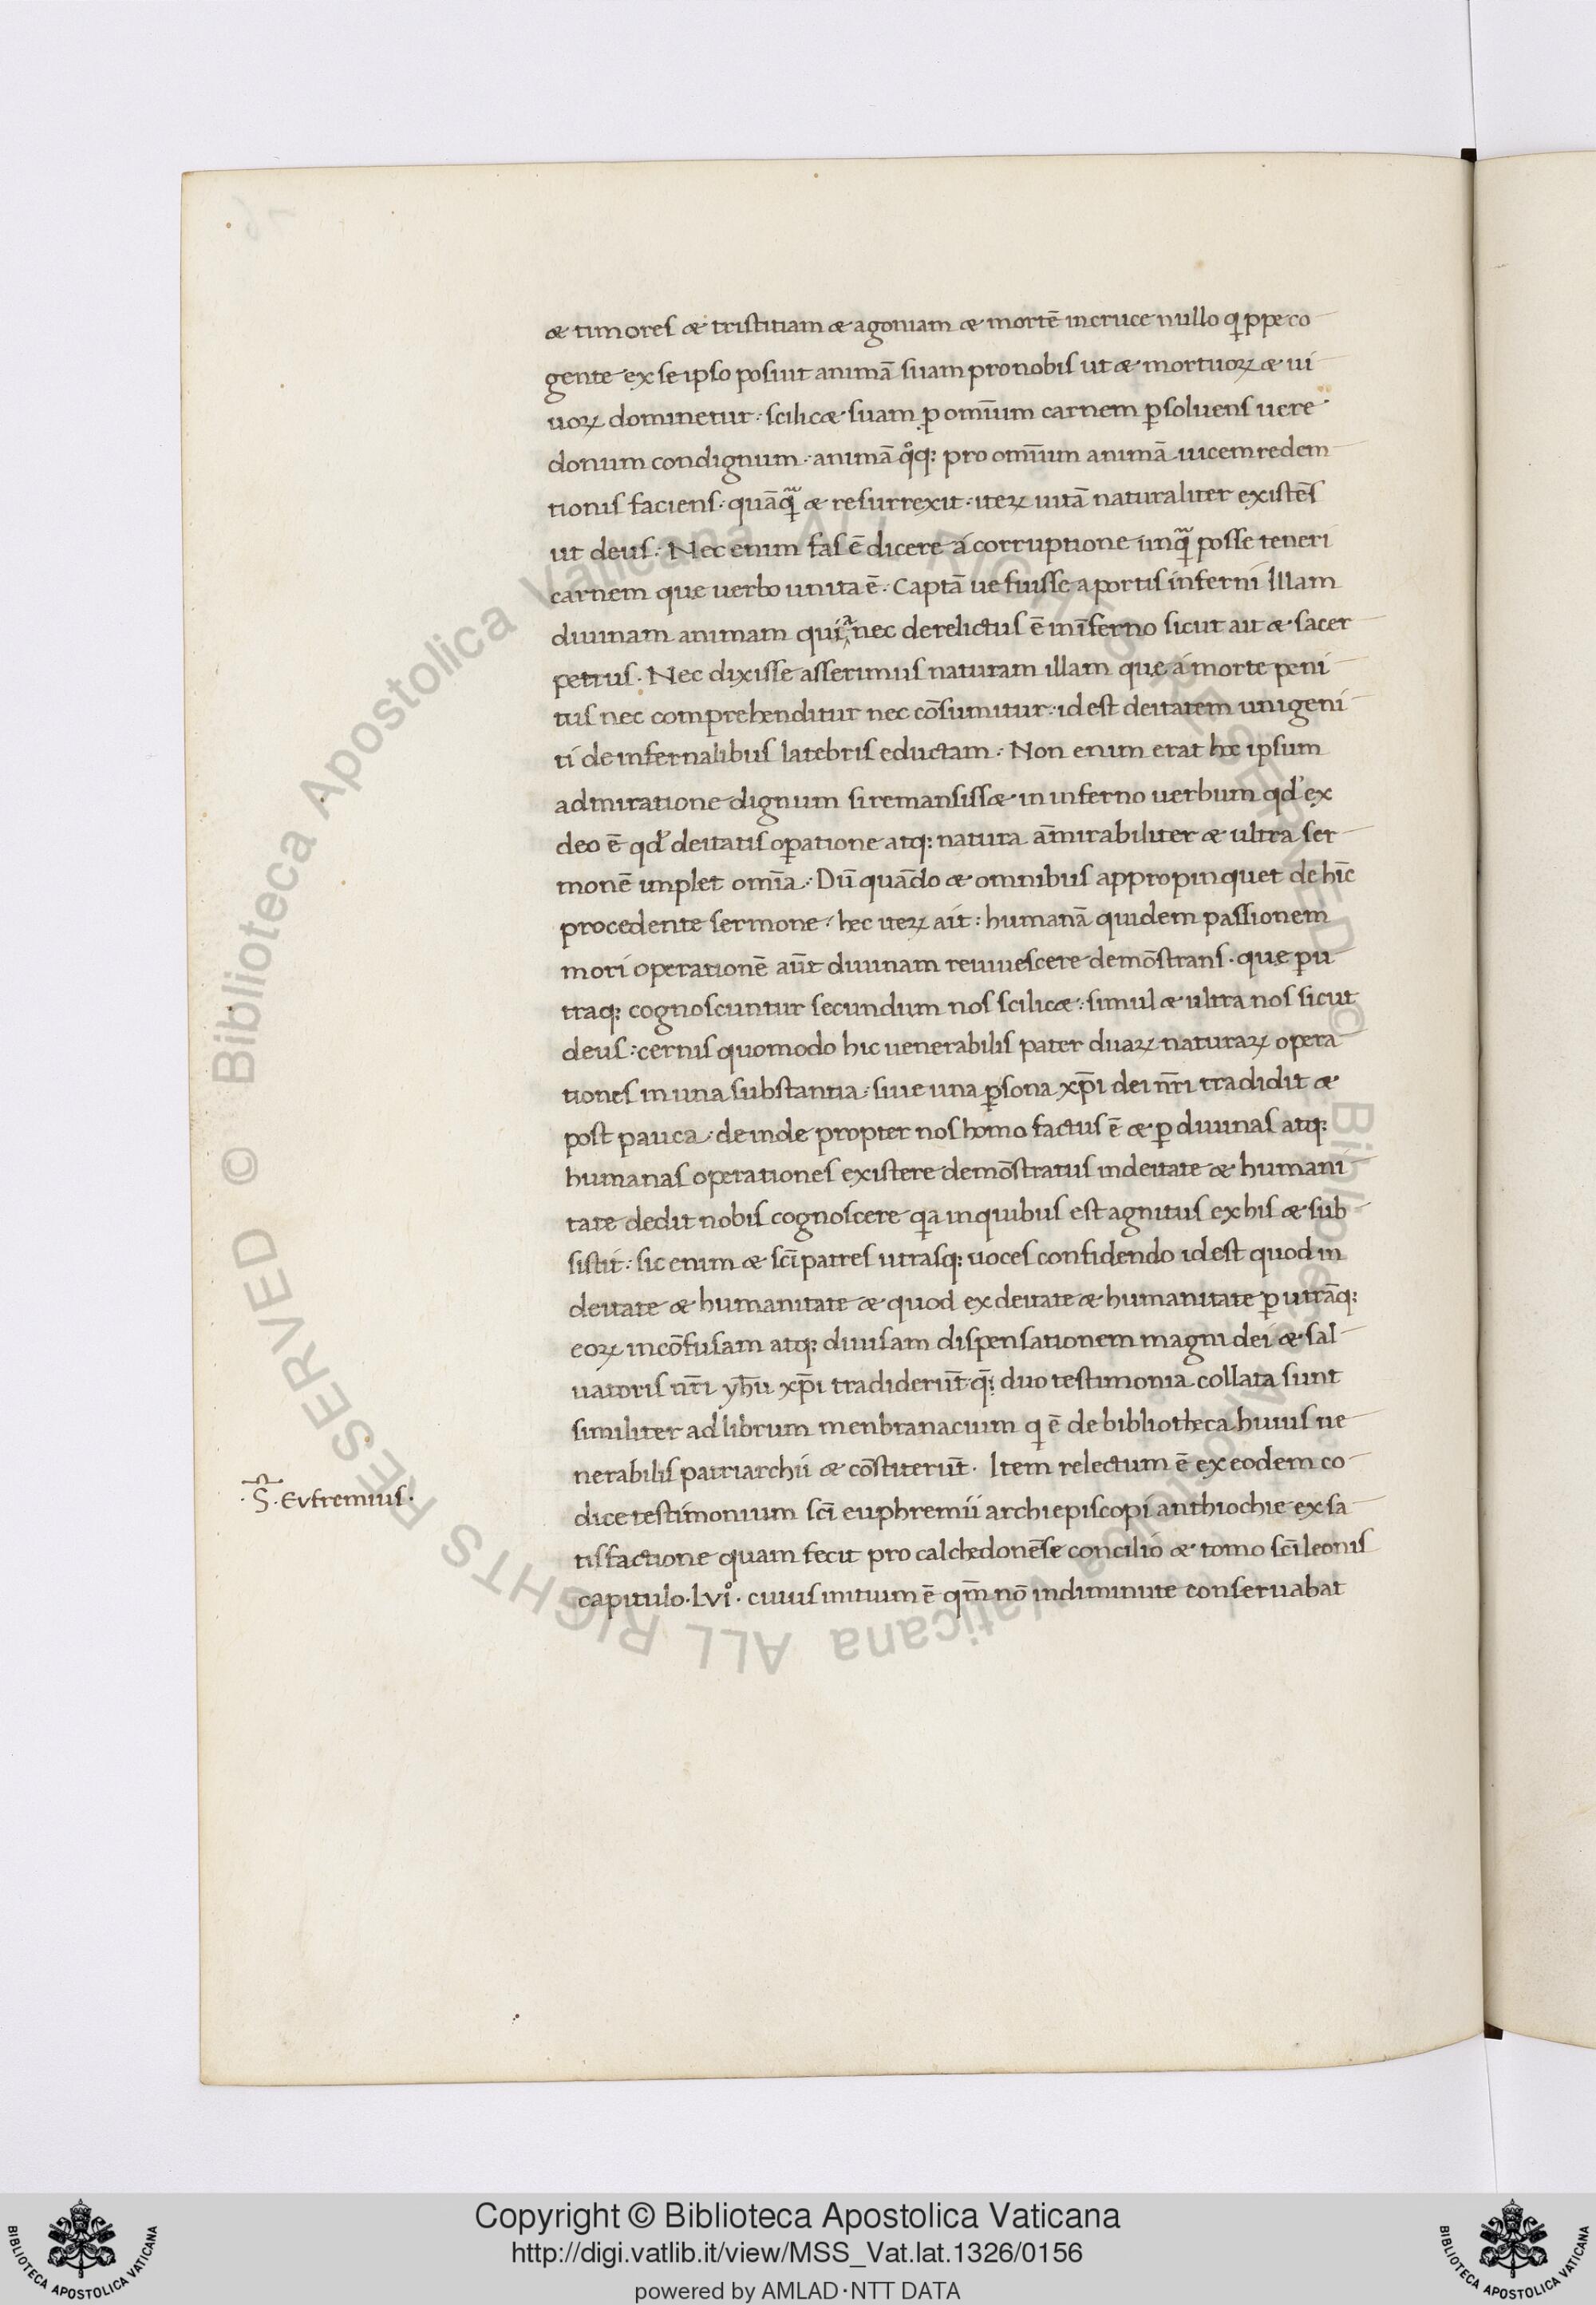 æ timores æ tristitiam æ agoniam æ mortē incruce nullo qͥppe co
gente ex se ipso posuit animā suam pro nobis ut æ mortuoꝝ æ ui
uoꝝ dominetur : scilicæ suam ꝓ omīum carnem ꝑsoluens uere
donum condignum : animā qͦqꝫ pro omīum animā uicem redem
tionis faciens : quāqͣ æ resurrexit : iteꝝ uitā naturaliter existēs
ut deus : Nec enim fas ē dicere á corruptione unqͣ posse teneri
carnem que uerbo unita ē . Captā ue fuisse a portis inferni illam
diuinam animam quiª nec derelictus ē in īferno sicut ait æ sacer
petrus . Nec dixisse asserimus naturam illam que á morte peni
tus nec comprehenditur nec cōsumitur : id est deitatem unigeni
ti de infernalibus latebris eductam : Non enim erat hoc ipsum
admiratione dignum si remansissæ in inferno uerbum qd̓ ex
deo ē qd̓ deitatis oꝑatione atqꝫ natura āmirabiliter æ ultra ser
monē implet omīa : Dū quādo æ omnibus appropinquet de hīc
procedente sermone : hec iteꝝ ait : humanā quidem passionem
mori operationē aūt diuinam reuiuescere demōstrans . que ꝑ u
traqꝫ cognoscuntur secundum nos scilicæ : simul æ ultra nos sicut
deus : cernis quomodo hic uenerabilis pater duaꝝ naturaꝝ opera
tiones in una substantia : siue una ꝑsona xp̄i dei nr̄i tradidit æ
post pauca : deinde propter nos homo factus ē æ ꝑ diuinas atqꝫ
humanas operationes existere demōstratus in deitate æ humani
tate dedit nobis cognoscere qͥa in quibus est agnitus ex his æ sub
sistit : sic enim æ scī patres utrasqꝫ uoces confidendo id est quod in
deitate æ humanitate æ quod ex deitate æ humanitate ꝑ utrāqꝫ
eoꝝ incōfusam atqꝫ diuisam dispensationem magni dei æ sal
uatoris nr̄i yh̄u xp̄i tradiderūt q̄ꝫ duo testimonia collata sunt
similiter ad librum menbranacium qͥ ē de bibliotheca huius ue
nerabilis patriarchii æ cōstiterūt . Item relectum ē ex eodem co
dice testimonium scī euphremii archiepiscopi anthiochie ex sa
tisfactione quam fecit pro calchedonēse concilio æ tomo scī leonis
capitulo . lviͦ . cuius initium ē qm̄ nō indiminute conseruabat
. S̄ . Evfremius .
Copyright © Biblioteca Apostolica Vaticana
http://digi.vatlib.it/view/MSS_Vat.lat.1326/0156
powered by AMLAD·NTT DATA
BIBLIOTECA APOSTOLICA VATICANA
BIBLIOTECA APOSTOLICA VATICANA
© Biblioteca Apostolica Vaticana ALL RIGHTS RESERVED © Biblioteca Apostolica Vaticana ALL RIGHTS RESERVED